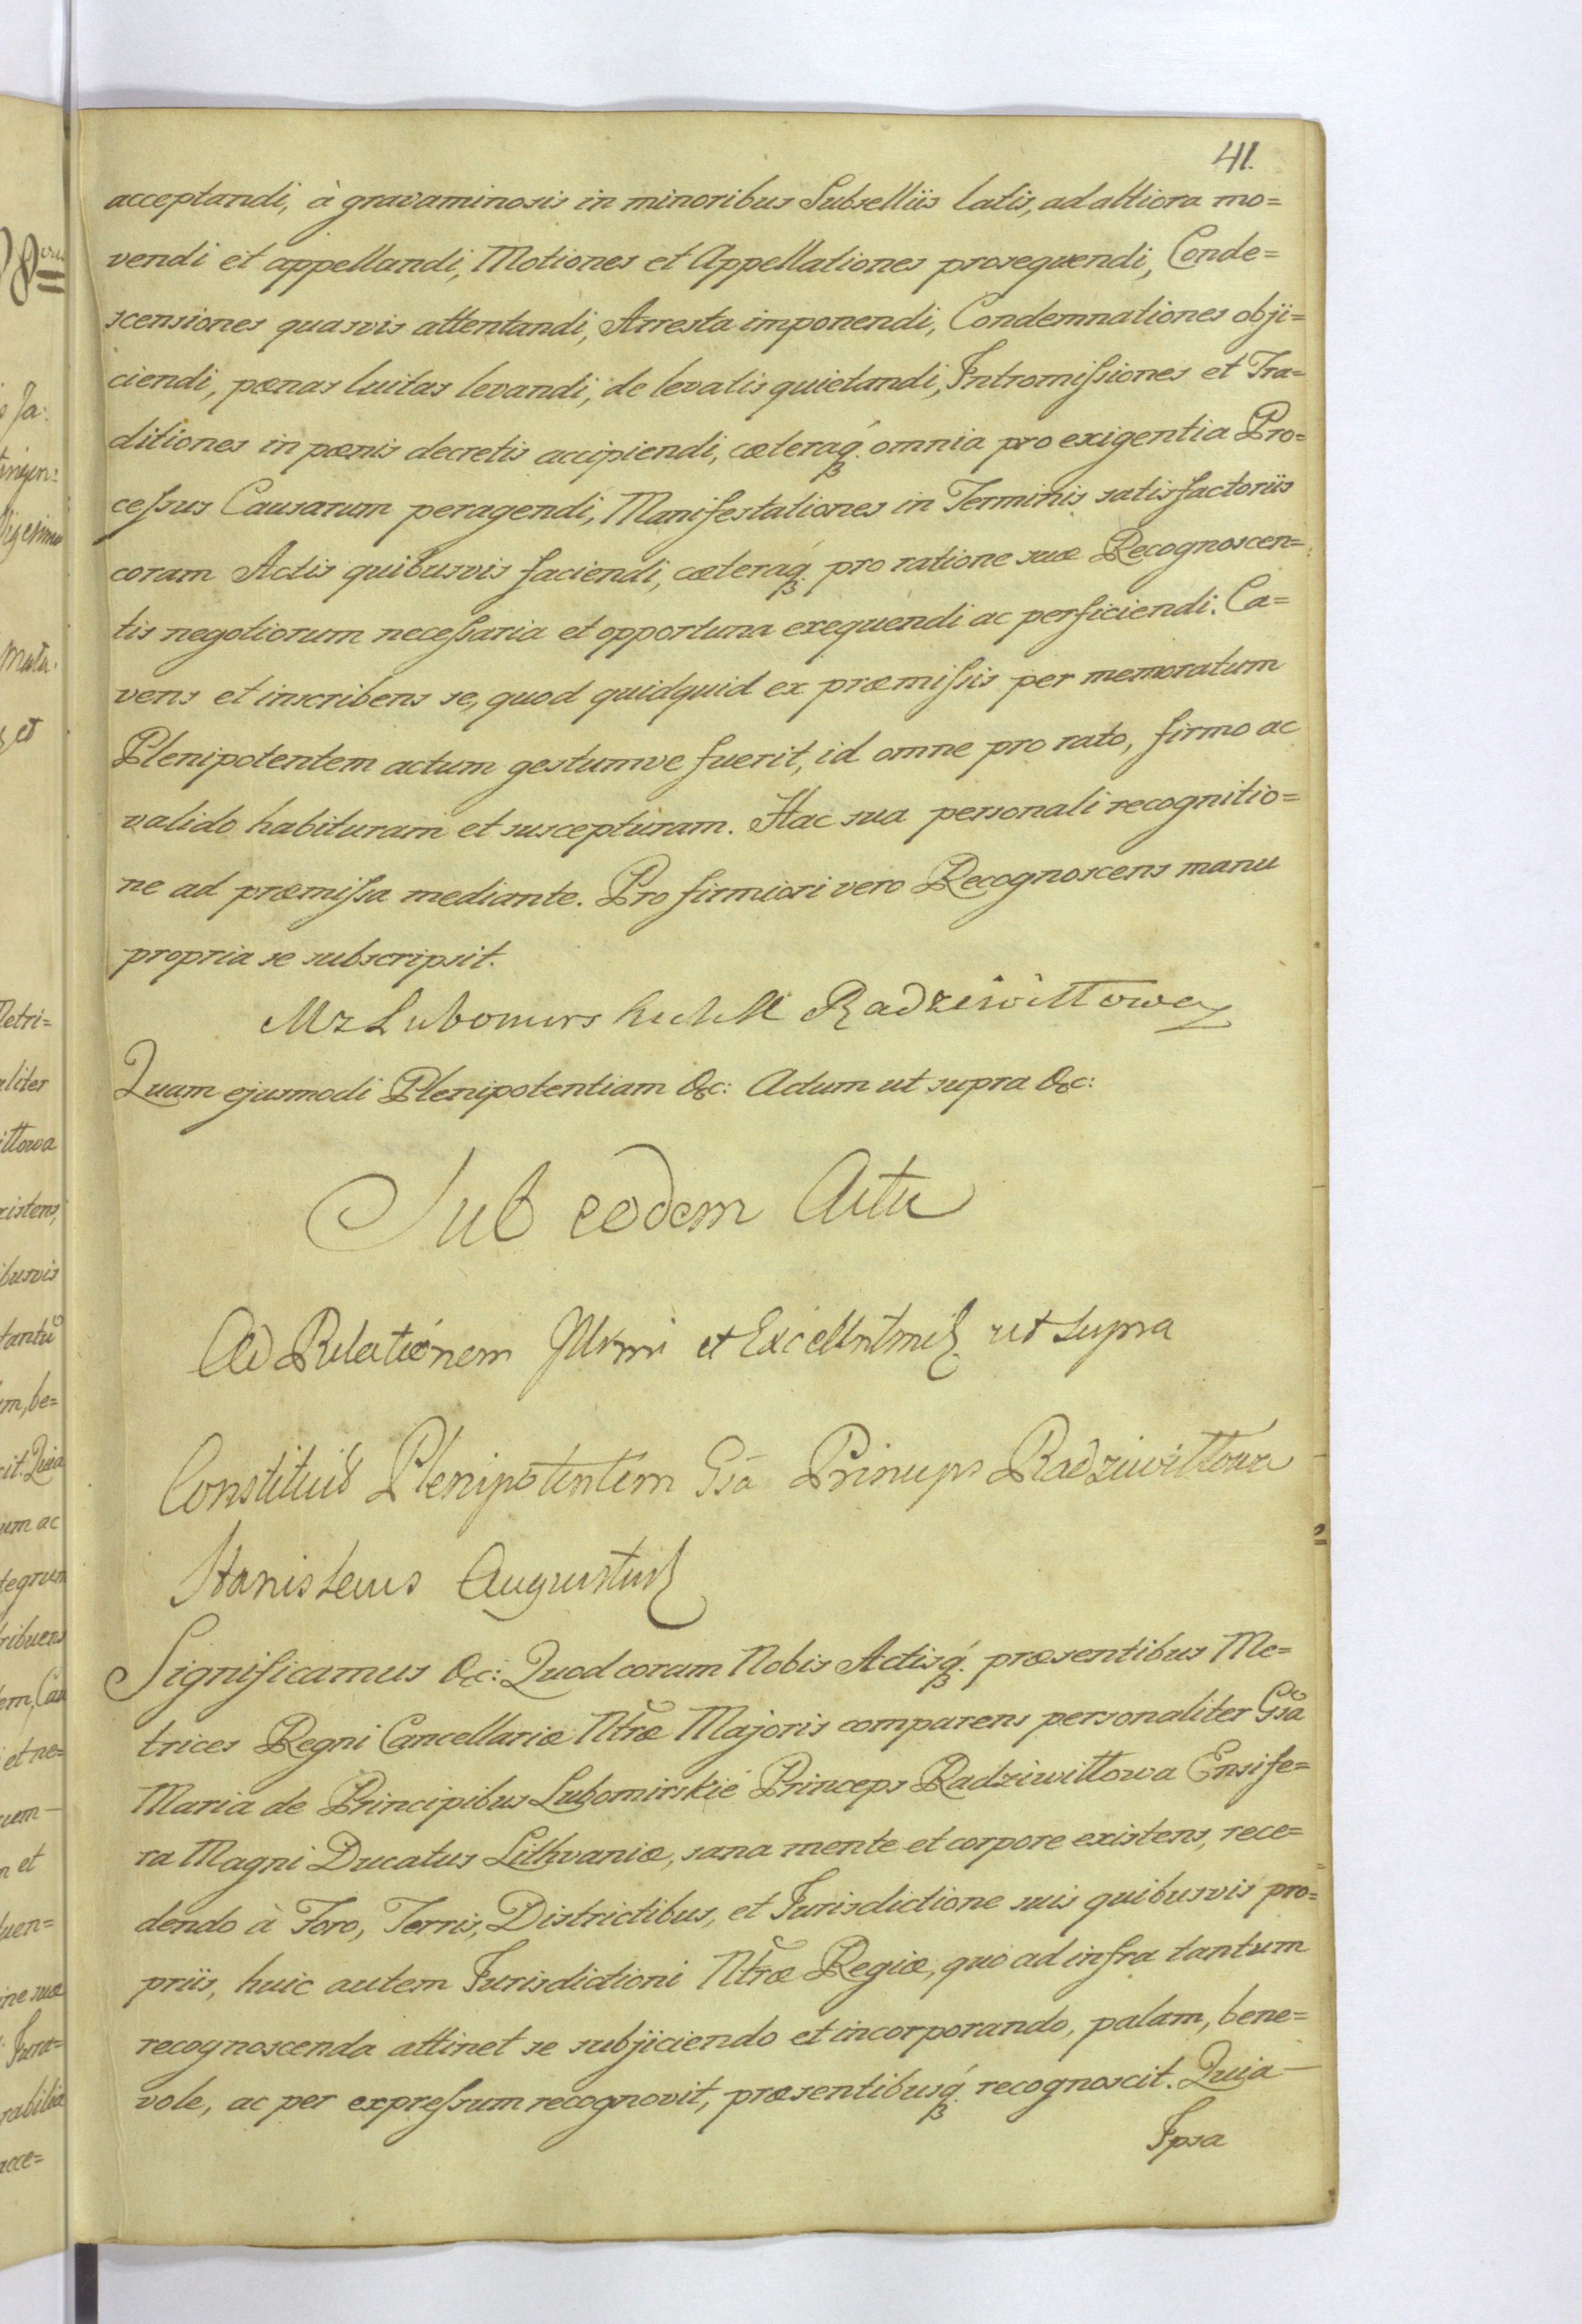 41.
acceptandi, à gravaminosis in minoribus Subselliis latis, ad altiora mo=
vendi et appellandi, Motiones et Appellationes prosequendi, Conde=
scensiones quasvis attentandi, Arresta imponendi, Condemnationes obji=
ciendi, pœnas luitas levandi, de levatis quietandi, Intromissiones et Tra=
ditiones in pœnis decretis accipiendi, cæteraq́ omnia pro exigentia Pro=
cessus Causarum peragendi, Manifestationes in Terminis satisfactoriis
coram Actis quibusvis faciendi, cæteraq́ pro ratione suæ Recognoscen=
tis negotiorum necessaria et opportuna exequendi ac perficiendi. Ca=
vens et inscribens se, quod quidquid ex præmissis per memoratum
Plenipotentem actum gestumve fuerit, id omne pro rato, firmo ac
valido habituram et suscepturam. Hac sua personali recognitio=
ne ad præmissa mediante. Pro firmiori vero Recognoscens manu
propria se subscripsit.
Radziwiłłowa
Quam ejusmodi Plenipotentiam &c: Actum ut supra &c:
Sub eodem Actu
Ad Relationem Illrmi et ut supra
Constituit Plenipotentem Gsa Princeps Radziwiłłowa
Stanislaus Augustus
Significamus &c: Quod coram Nobis Actisq́ præsentibus Me=
trices Regni Cancellariæ Ntræ Majoris comparens personaliter Gsa
Maria de Principibus Lubomirskie Princeps Radziwiłłowa Ensife=
ra Magni Ducatus Lithvaniæ, sana mente et corpore existens, rece=
dendo à Foro, Terris, Districtibus, et Jurisdictione suis quibusvis pro=
priis, huic autem Jurisdictioni Ntræ Regiæ, quo ad infra tantum
recognoscenda attinet se subjiciendo et incorporando, palam, bene=
vole, ac per expressum recognovit, præsentibusq́ recognoscit. Quia—
Ipsa